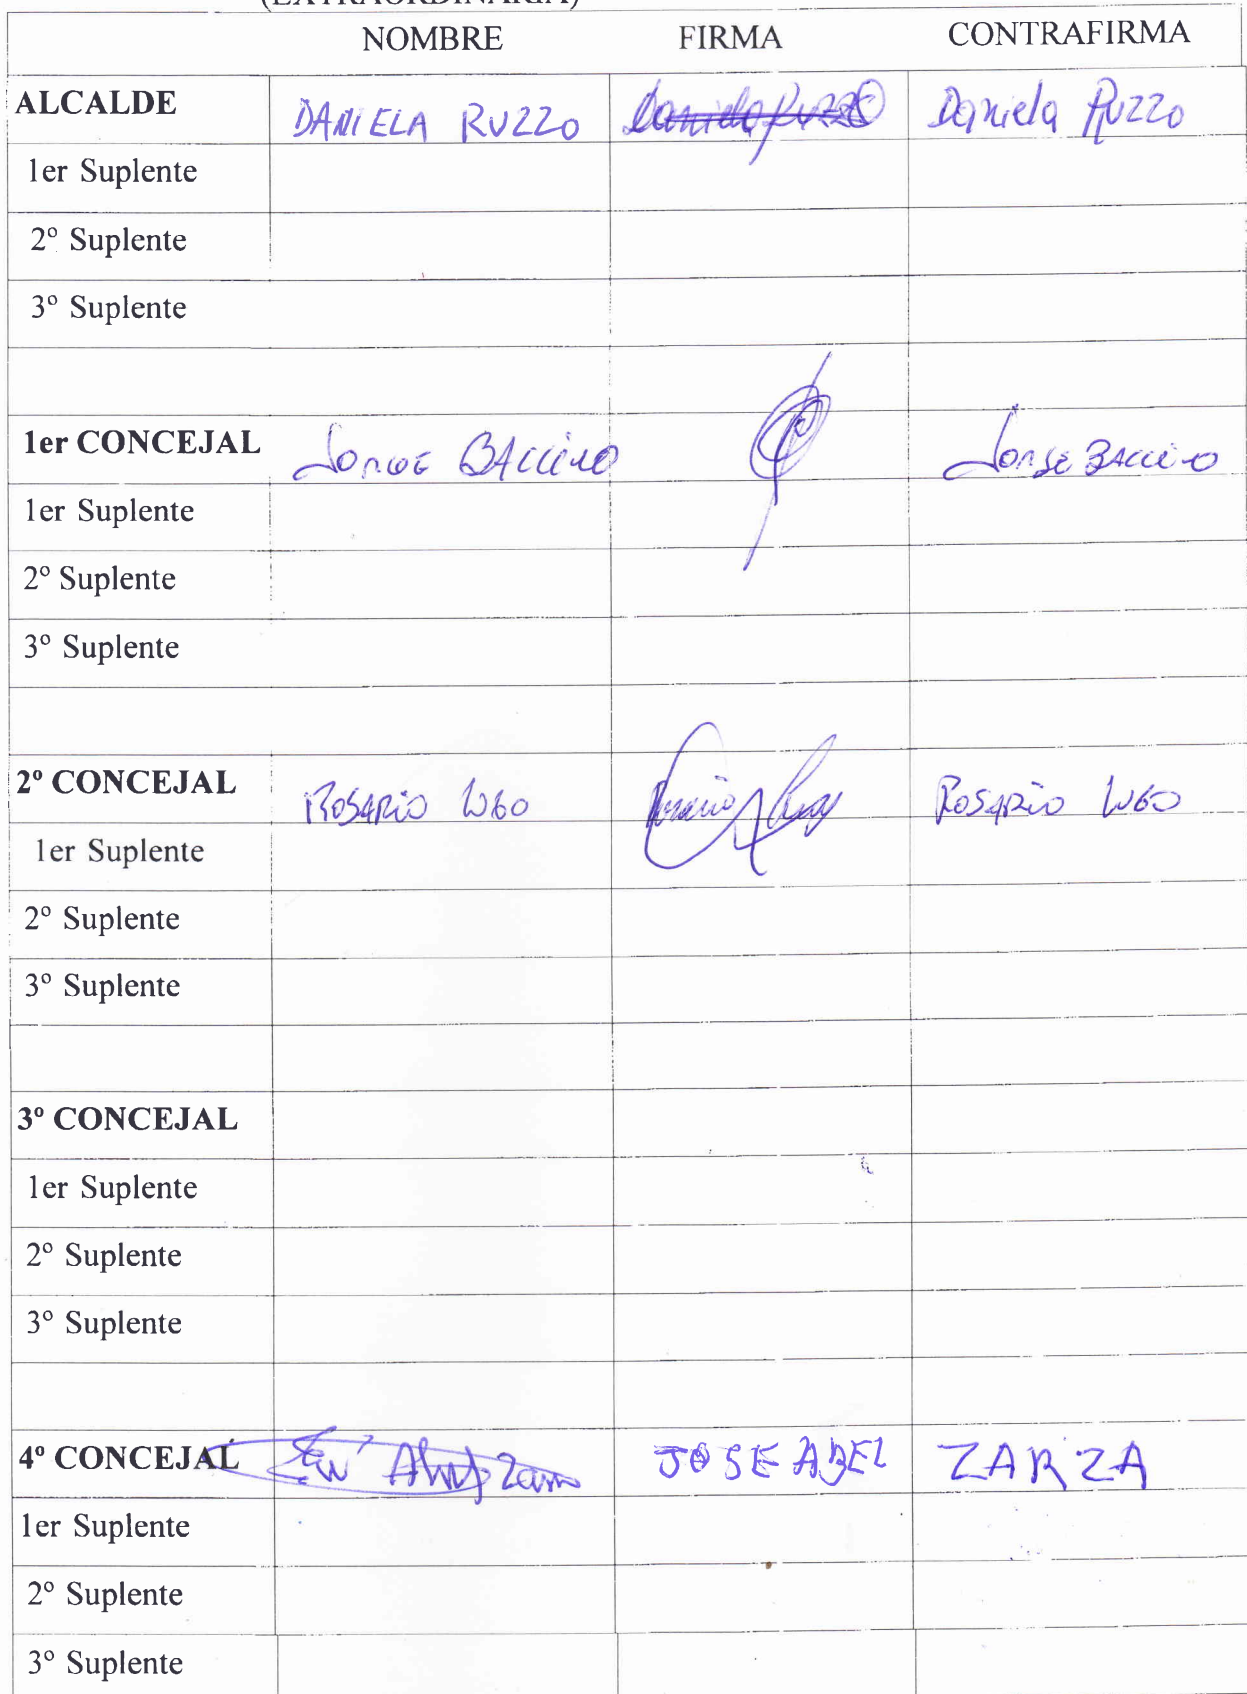 (EXTRAORDINARIA)
NOMBRE FIRMA CONTRAFIRMA
ALCALDE DANIELA RUZZO Daniela Ruzzo Daniela Ruzzo
1er Suplente
2º Suplente
3º Suplente
1er CONCEJAL Jorge BACCINO Jorge BACCINO
1er Suplente
2º Suplente
3º Suplente
2º CONCEJAL ROSARIO LUGO Rosario Lugo ROSARIO LUGO
1er Suplente
2º Suplente
3º Suplente
3º CONCEJAL
1er Suplente
2º Suplente
3º Suplente
4º CONCEJAL JOSE ABEL ZARZA
1er Suplente
2º Suplente
3º Suplente